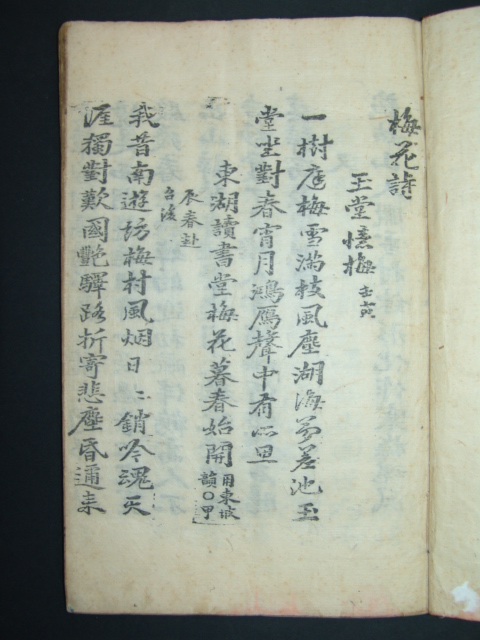 梅花詩
玉堂憶梅 壬寅
一樹庭梅雪滿枝風塵湖海夢差池玉
堂坐對春宵月鴻鴈聲中有所思
東湖讀書堂梅花暮春始開 用東坡韻○甲
辰春赴召後
我昔南遊訪梅村風烟日〻銷吟魂天
涯獨對歎國艶驛路折寄悲塵昏邇來